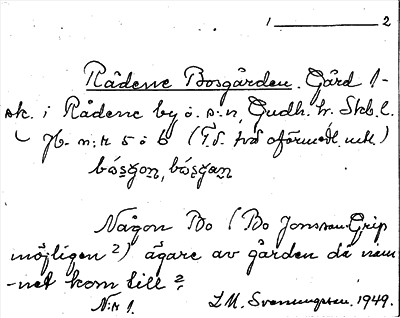 1 2
Rådene Bosgården. Gård 1-
sk. i Rådene by o. s:n, Gudh. hr. Skb. l.
Jb. n:r 5 o 6 (T.d. två oförmedl. mtl.)
båsgon, båsgan
Någon Bo (Bo Jonsson Grip
möjligen?) ägare av gården då nam-
-net kom till?
N:r 1. L.M. Svenungsson. 1949.